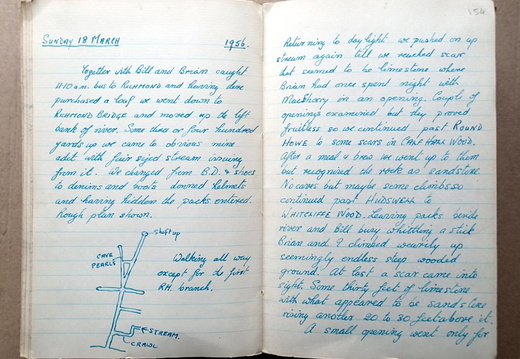 SUNDAY 18 MARCH 1956.
Together with Bill and Brian caught
11.10 a.m. bus to RICHMOND and having there
purchased a loaf we went down to
RICHMOND BRIDGE and moved up the left
bank of river. Some three or four hundred
yards up we came to obvious mine
adit with fair sized stream issuing
from it. We changed from B.D.s & shoes
to denims and boots donned helmets
and having hidden the packs entered.
Rough plan shown.
Shaft up
CAVE
PEARLS
Walking all way
except for the first
RH. branch.
STREAM.
CRAWL
154
Returning to daylight we pushed on up
stream again till we reached scars
that seemed to be limestone where
Brian had once spent night with
MacSherry in an opening. Couple of
openings examined but they proved
fruitless so we continued past ROUND
HOWE to some scars in WOOD.
After a meal & brew we went up to them
but recognised the rock as sandstone.
No caves but maybe some climbs so
continued past HUDSWELL to
WHITCLIFFE WOOD. Leaving packs beside
river and Bill busy whittling a stick
Brian and I climbed wearily up
seemingly endless steep wooded
ground. At last a scar came into
sight. Some thirty feet of limestone
with what appeared to be sandstone
rising another 20 to 30 feet above it.
A small opening went only for